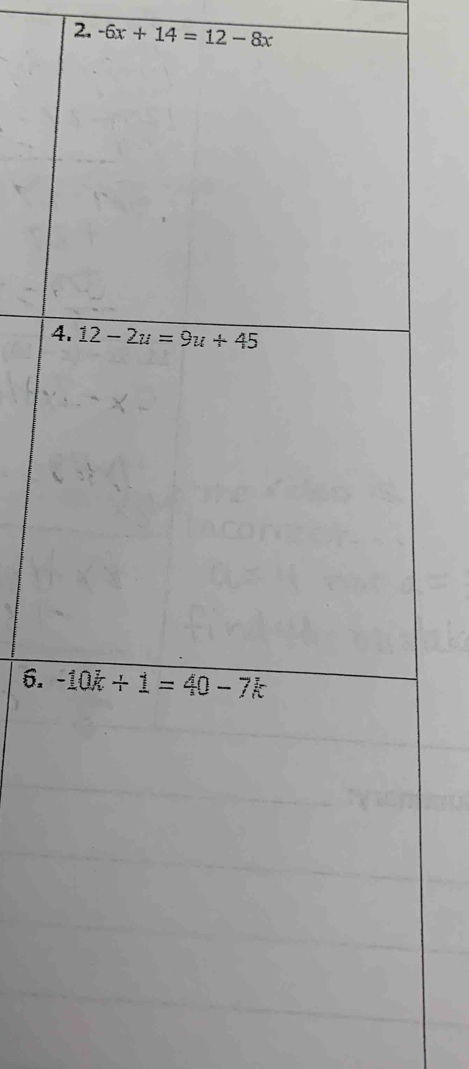 2. -6x + 14 = 12 – 8x
4. 12 – 2u = 9u + 45
6. -10k + 1 = 40 – 7k